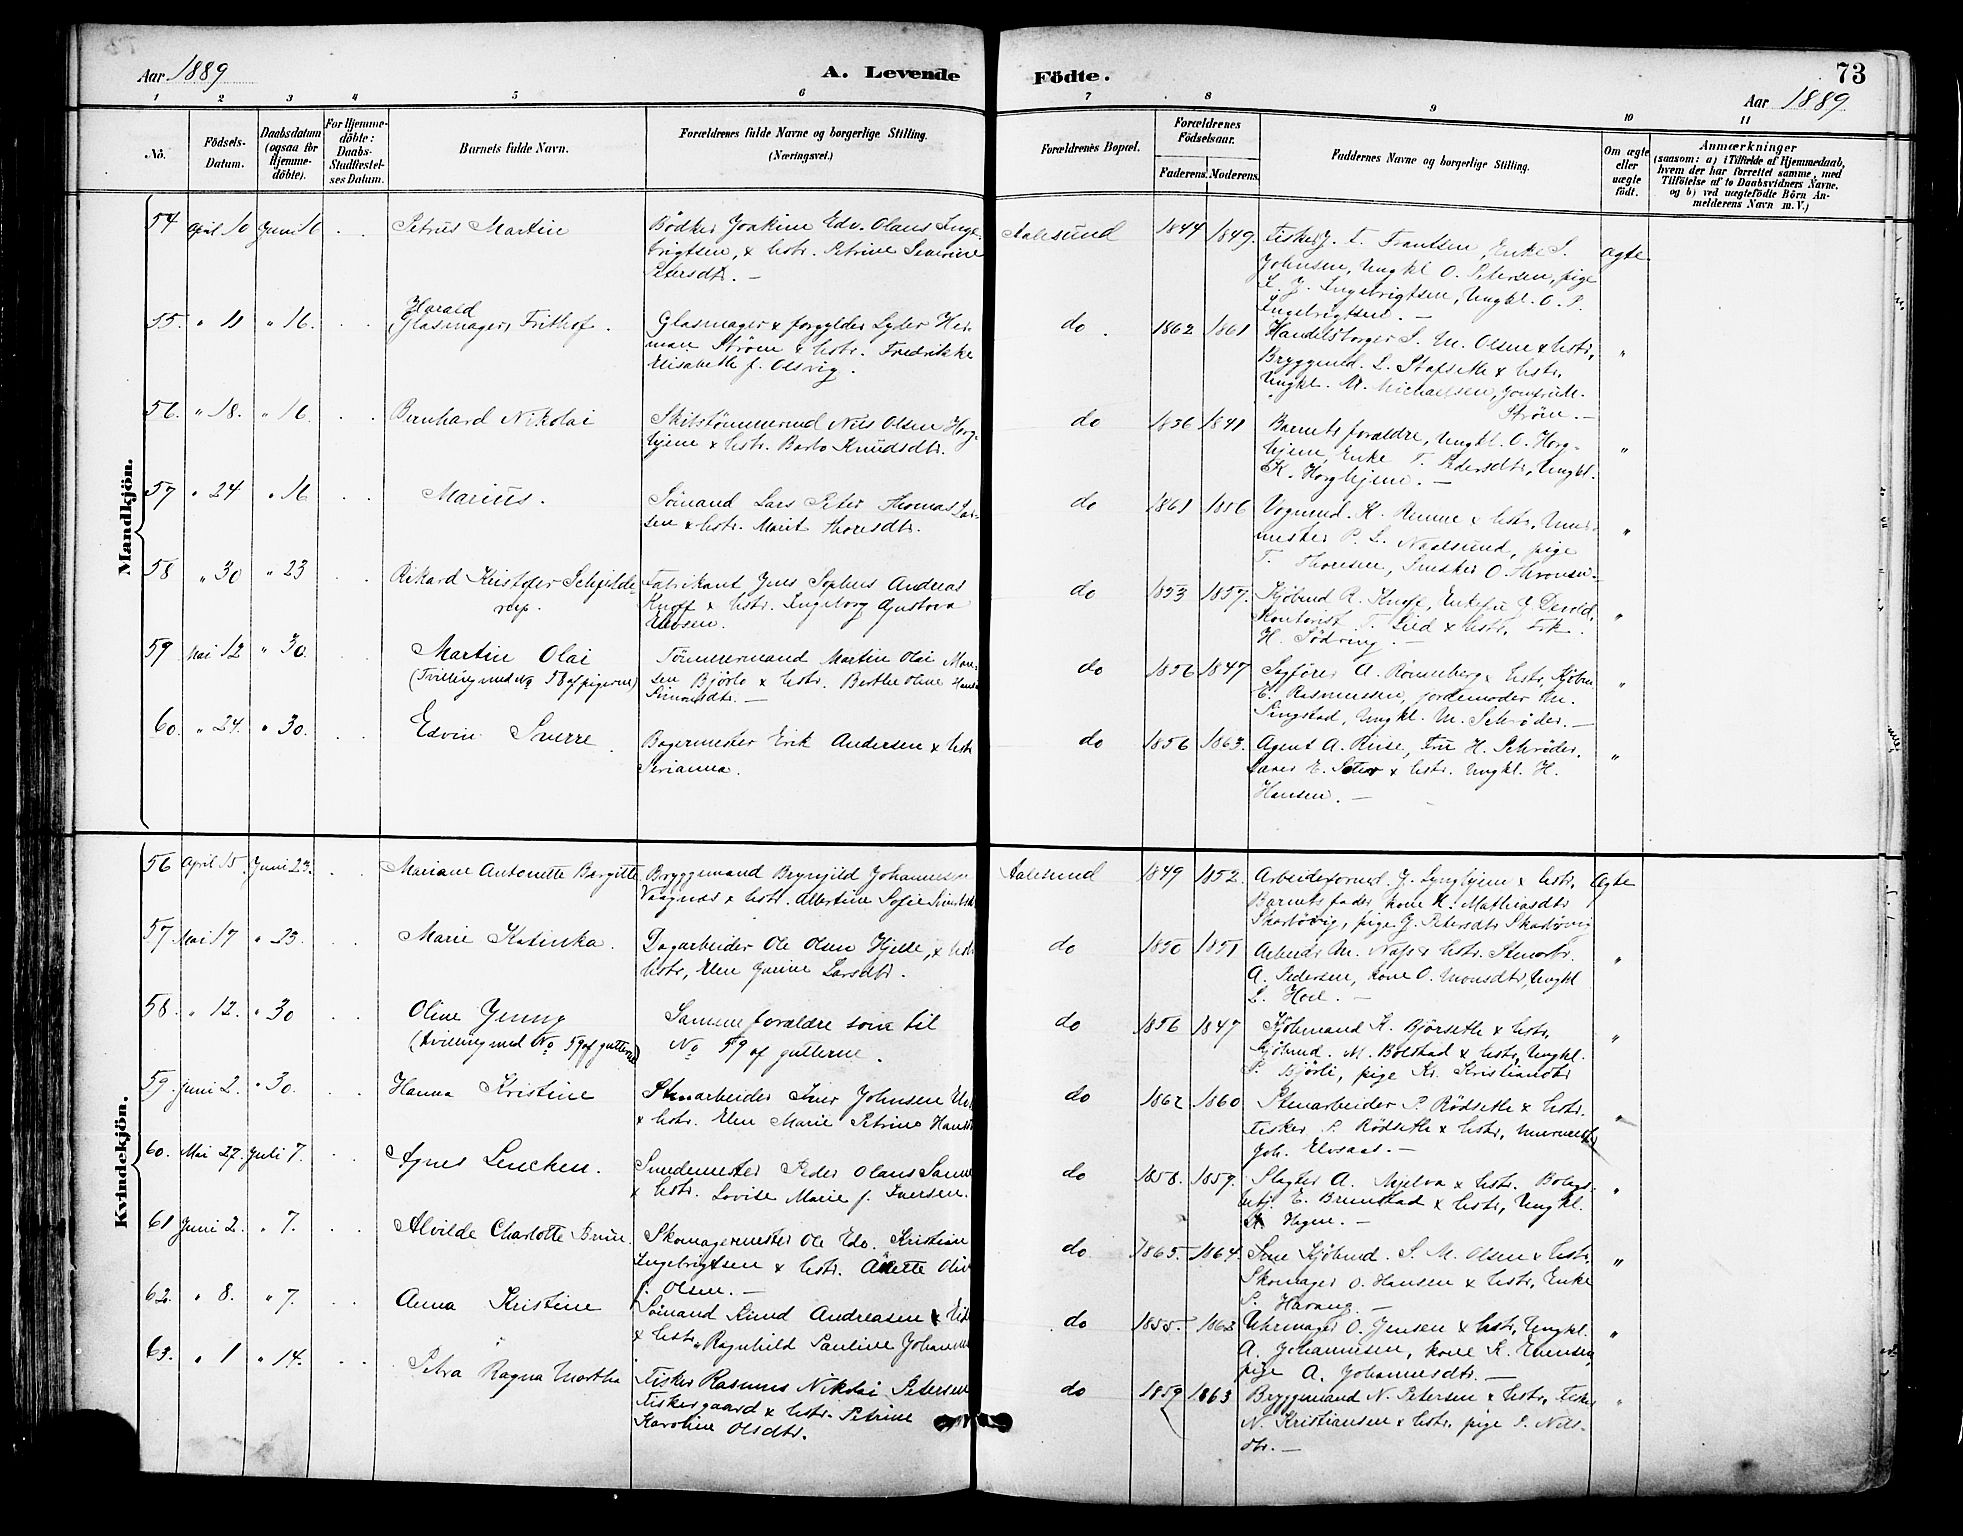 Aar 1889
A. Levende
Födte.
73
Aar 1889
1 2 3 4 5 6 7 8 9 10 11
No.
Födsels-
Datum.
Daabsdatum
(ogsaa for
Hjemme-
döbte).
For Hjemme-
döbte:
Daabs-
Stadfæstel-
ses Datum.
Barnets fulde Navn.
Forældrenes fulde Navne og borgerlige Stilling.
(Næringsvei.)
Forældrenes Bopæl.
Forældrenes
Födselsaar.
Faderens. Moderens.
Faddernes Navne og borgerlige Stilling.
Om ægte
eller
uægte
født.
Anmærkninger
(saasom: a) i Tilfælde af Hjemmedaab,
hvem der har forrettet samme, med
Tilföielse af to Daabsvidners Navne,
og b) ved uægtefödte Börn An-
melderens Navn m. V.)
Mandkjön.
54 April 10 Juni 16 Petrus Martin
Bödker Joakim Edv. Olaus Inge-
brigtsen, & hstr. Petrine Severine
Petersdtr. —
Aalesund 1844 1849.
Fisker J. T. Frantsen, Enke S.
Johnsen, Ungkl O. Petersen, pige
L. J. Ingebrigtsen, Ungkl. O. P.
Ingebrigtsen. —
ægte
55. " 11 " 16. Harald
(Glasmager) Frithof.
Glasmager & forgylder Syler Her-
man Strøm & hstr. Fredrikke
Elisabeth f. Olsvig.
do. 1862 1861
Handelsborger S. M. Olsen & hstr,
Bryggemd. L. Stafseth & hstr,
Ungkl. M. Michaelsen, Jomfru M.
Strøm. —
"
56. " 18. " 16. Bernhard Nikolai
Skibstømmermd Nils Olsen Horg-
hjem & hstr. Barbo Knudsdtr.
do 1836 1841
Barnets forældre, Ungkl. O. Horg-
hjem, Enke T. Pedersdtr, Ungkl.
K. Horghjem. —
"
57 " 24 " 16 Marius.
Sömand Lars Peter Thomas Lar-
sen & hstr. Marit Thoresdtr.
do 1861 1856
Vognmd. K. Remme & hstr, Murer-
mester P. L. Naalsund, pige
T. Thoresen, Snedker O. Thronsen.
"
58 " 30 " 23 Rikard Kristofer Schjelde-
rup.
Fabrikant Jens Sophus Andreas
Knoff & hstr. Ingeborg Gustava
Elevsen.
do 1853 1857.
Kjöbmd R. Knoff, Enkefru G. Devold,
Kontorist T. Lied & hstr, Frk.
H. Södring. —
"
59 Mai 12 " 30. Martin Olai
(Tvilling med No 58 af pigerne)
Tömmermand Martin Olai Mon-
sen Björlo & hstr. Berthe Oline Hansine
Simonsdtr. —
do 1856 1847
Sagfører A. Rönneberg & hstr, Kjöbm
E. Rasmussen, jordemoder M.
Singstad, Ungkl. M. Schröder. —
"
60. " 24. " 30. Edvin Sverre.
Bagermester Erik Andersen & hstr
Serianna.
do 1856 1863.
Agent A. Reise, Fru H. Schröder,
Larer E. Sæter & hstr. Ungkl. H.
Hansen. —
"
Kvindekjön.
56 April 15 Juni 23. Mariane Antonette Bergitte
Bryggemand Brynjild Johannesen
Vaagnæs & hstr. Albertine Sofie
Aalesund 1849 1852.
Arbeidsformd. J. Lynghjem & hstr,
Barnets fader, kone K. Mathiasdtr
Skorbövig, pige J. Petersdtr Skarbövig
Ægte
57. Mai 17 " 23. Marie Katinka.
Dagarbeider Ole Olsen Hjelle, &
hstr, Elen Gurine Larsdtr.
do 1850 1851
Arbeid. M. Næss & hstr. Stenarb.
A. Pedersen, kone O. Monsdtr, Ungkl
L. Hoel. —
"
58. " 12. " 30 Oline Jenny
(Tvilling med No 59 af gutterne)
Samme forældre som til
No 59 af gutterne.
do 1856 1847
Kjöbmand K. Björseth & hstr,
Kjöbmd. M. Bolstad & hstr, Ungkl.
P. Björlo, pige Kr. Kristiansdtr
"
59. Juni 2. " 30. Hanna Kristine
Stenarbeider Iver Johnsen
& hstr. Elen Marie Petrine
do 1862 1860
Stenarbeider P. Rödseth & hstr.
Fisker P. Rödseth & hstr, Murmester
Joh. Elvsaas. —
"
60. Mai 27. Juli 7. Agnes Lenchen.
Smedemester Peder Olaus
& hstr. Lovise Marie f. Iversen.
do 1858. 1859.
Slagter A. Mjelva & hstr. Bologs-
betj. E. Brunstad & hstr, Ungkl.
K. Hagen. —
"
61 Juni 2. " 7. Alvilde Charlotte Bruun.
Skomagermester Ole Edv. Kristian
Ingebrigtsen & hstr. Anette
f. Olsen. —
do 1865. 1864.
Frue Kjöbmd. S. M. Olsen & hstr,
Skomager O. Hansen & hstr, Enke
P. Havang. —
"
62. " 8. " 7. Anna Kristine
Sömand Knud Andreasen
& hstr. Ragnhild Pauline
do 1855. 1863
Uhrmager O. Jensen & hstr, Ungkl.
A. Johannesen, kone K. Evensen,
pige A. Johannesdtr. —
"
63. " 1 " 14. Petra Ragna Martha
Fisker Rasmus Nikolai Petersen
Fiskergaard & hstr. Petrine
Karoline Olsdtr.
do 1859 1863
Bryggemand N. Petersen & hstr, Fisker
N. Kristiansen & hstr, pige P. Nils-
dtr. —
"